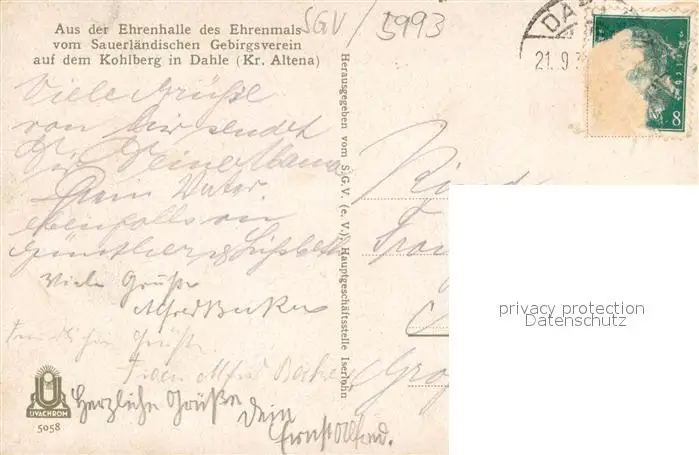 Aus der Ehrenhalle des Ehrenmals
vom Sauerländischen Gebirgsverein
auf dem Kohlberg in Dahle (Kr. Altena)
SGV/5993
DA
21.9.3
8
Viele Grüße
von hier sendet
Dir Deine Mama
Dein Vater.
ebenfalls an
Günther
Viele Grüße
Alfred Becker
Grüße
Frau Alfred Becker
Herzliche Grüße
Dein
Ernst Alfred.
Herausgegeben vom S.G.V. (e. V.), Hauptgeschäftsstelle Iserlohn
UVACHROM
5058
privacy protection
Datenschutz